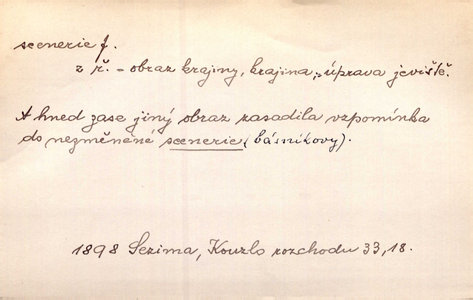 scenerie f.
z ř. – obraz krajiny, krajina, – úprava jeviště.
A hned zase jiný obraz zasadila vzpomínka
do nezměněné scenerie (básníkovy).
1898 Sezima, Kouzlo rozchodu 33, 18.